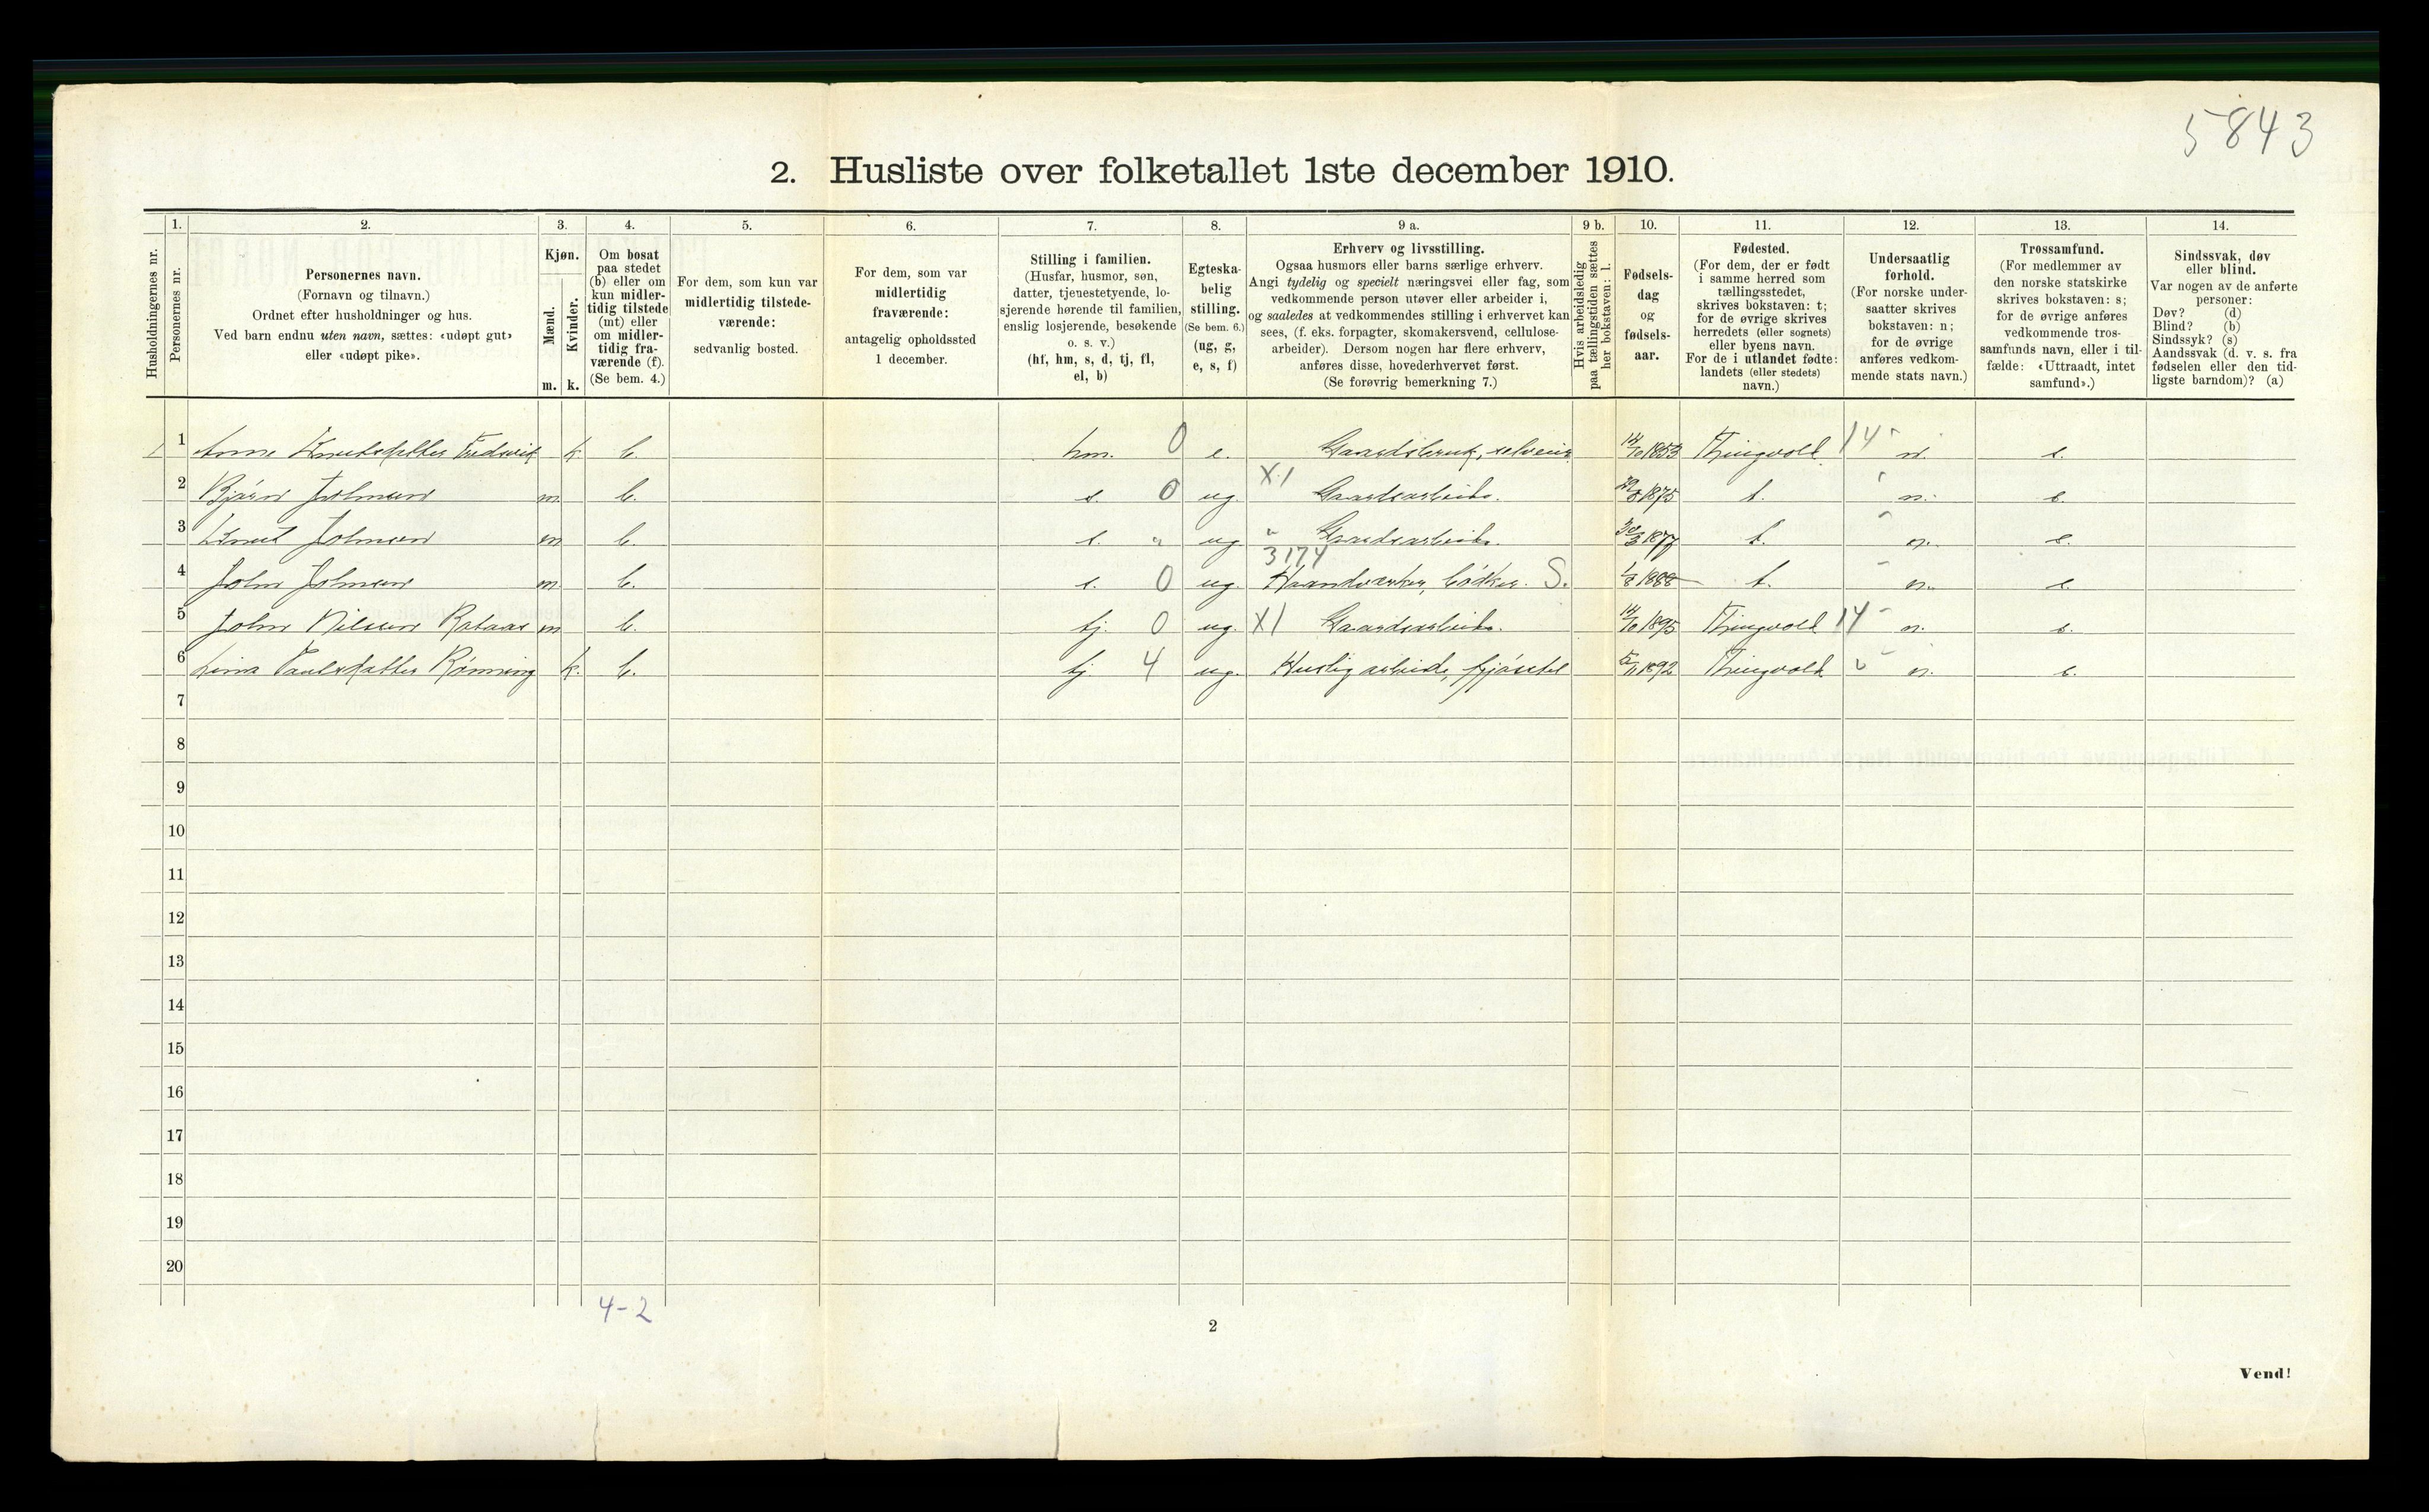 5843
2. Husliste over folketallet 1ste december 1910.
Husholdningernes nr.
1.
Personernes nr.
2.
Personernes navn.
(Fornavn og tilnavn.)
Ordnet efter husholdninger og hus.
Ved barn endnu uten navn, sættes: «udøpt gut»
eller «udøpt pike».
3.
Kjøn.
Mænd.
m.
Kvinder.
k.
4.
Om bosat
paa stedet
(b) eller om
kun midler-
tidig tilstede
(mt) eller
om midler-
tidig fra-
værende (f).
(Se bem. 4.)
5.
For dem, som kun var
midlertidig tilstede-
værende:
sedvanlig bosted.
6.
For dem, som var
midlertidig
fraværende:
antagelig opholdssted
1 december.
7.
Stilling i familien.
(Husfar, husmor, søn,
datter, tjenestetyende, lo-
sjerende hørende til familien,
enslig losjerende, besøkende
o. s. v.)
(hf, hm, s, d, tj, fl,
el, b)
8.
Egteska-
belig
stilling.
(Se bem. 6.)
(ug, g,
e, s, f)
9 a.
Erhverv og livsstilling.
Ogsaa husmors eller barns særlige erhverv.
Angi tydelig og specielt næringsvei eller fag, som
vedkommende person utøver eller arbeider i,
og saaledes at vedkommendes stilling i erhvervet kan
sees, (f. eks. forpagter, skomakersvend, cellulose-
arbeider). Dersom nogen har flere erhverv,
anføres disse, hovederhvervet først.
(Se forøvrig bemerkning 7.)
9 b.
Hvis arbeidsledig
paa tællingstiden sættes
her bokstaven: l.
10.
Fødsels-
dag
og
fødsels-
aar.
11.
Fødested.
(For dem, der er født
i samme herred som
tællingsstedet,
skrives bokstaven: t;
for de øvrige skrives
herredets (eller sognets)
eller byens navn.
For de i utlandet fødte:
landets (eller stedets)
navn.)
12.
Undersaatlig
forhold.
(For norske under-
saatter skrives
bokstaven: n;
for de øvrige
anføres vedkom-
mende stats navn.)
13.
Trossamfund.
(For medlemmer av
den norske statskirke
skrives bokstaven: s;
for de øvrige anføres
vedkommende tros-
samfunds navn, eller i til-
fælde: «Uttraadt, intet
samfund».)
14.
Sindssvak, døv
eller blind.
Var nogen av de anførte
personer:
Døv? (d)
Blind? (b)
Sindssyk? (s)
Aandssvak (d. v. s. fra
fødselen eller den tid-
ligste barndom)? (a)
1 1 Anne Knutsdatter k. b. hm. 0 e. Gaardsbruk, selveier 1853 Thingvold 14 n. s.
2 Bjørn Johnsen m b. s. 0 ug. X1 Gaardsarbeide. 1875 t. n. s.
3 Knut Johnsen m b. s. " ug " Gaardsarbeide. 1877 t. n. s.
4 John Johnsen m b. s. 0 ug. 3174 Haandværker, bödker. S. 1/8 1888 t. n. s.
5 John Nilsen m b. tj. 0 ug. X1 Gaardsarbeide. 14/10 1895 Thingvold 14 n. s.
6 Lina Paulsdatter Rønning k. b. tj 4 ug. Huslig arbeide, fjøsstel 5/11 1892 Thingvold n. s.
7
8
9
10
11
12
13
14
15
16
17
18
19
20
4-2
2
Vend!